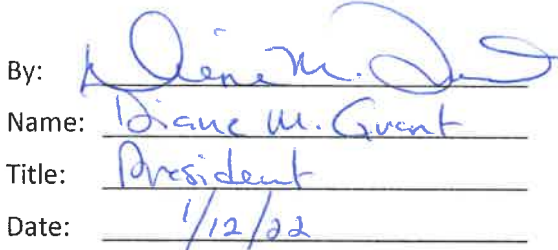 By: Diane M. Grant
Name: Diane M. Grant
Title: President
Date: 1/12/22